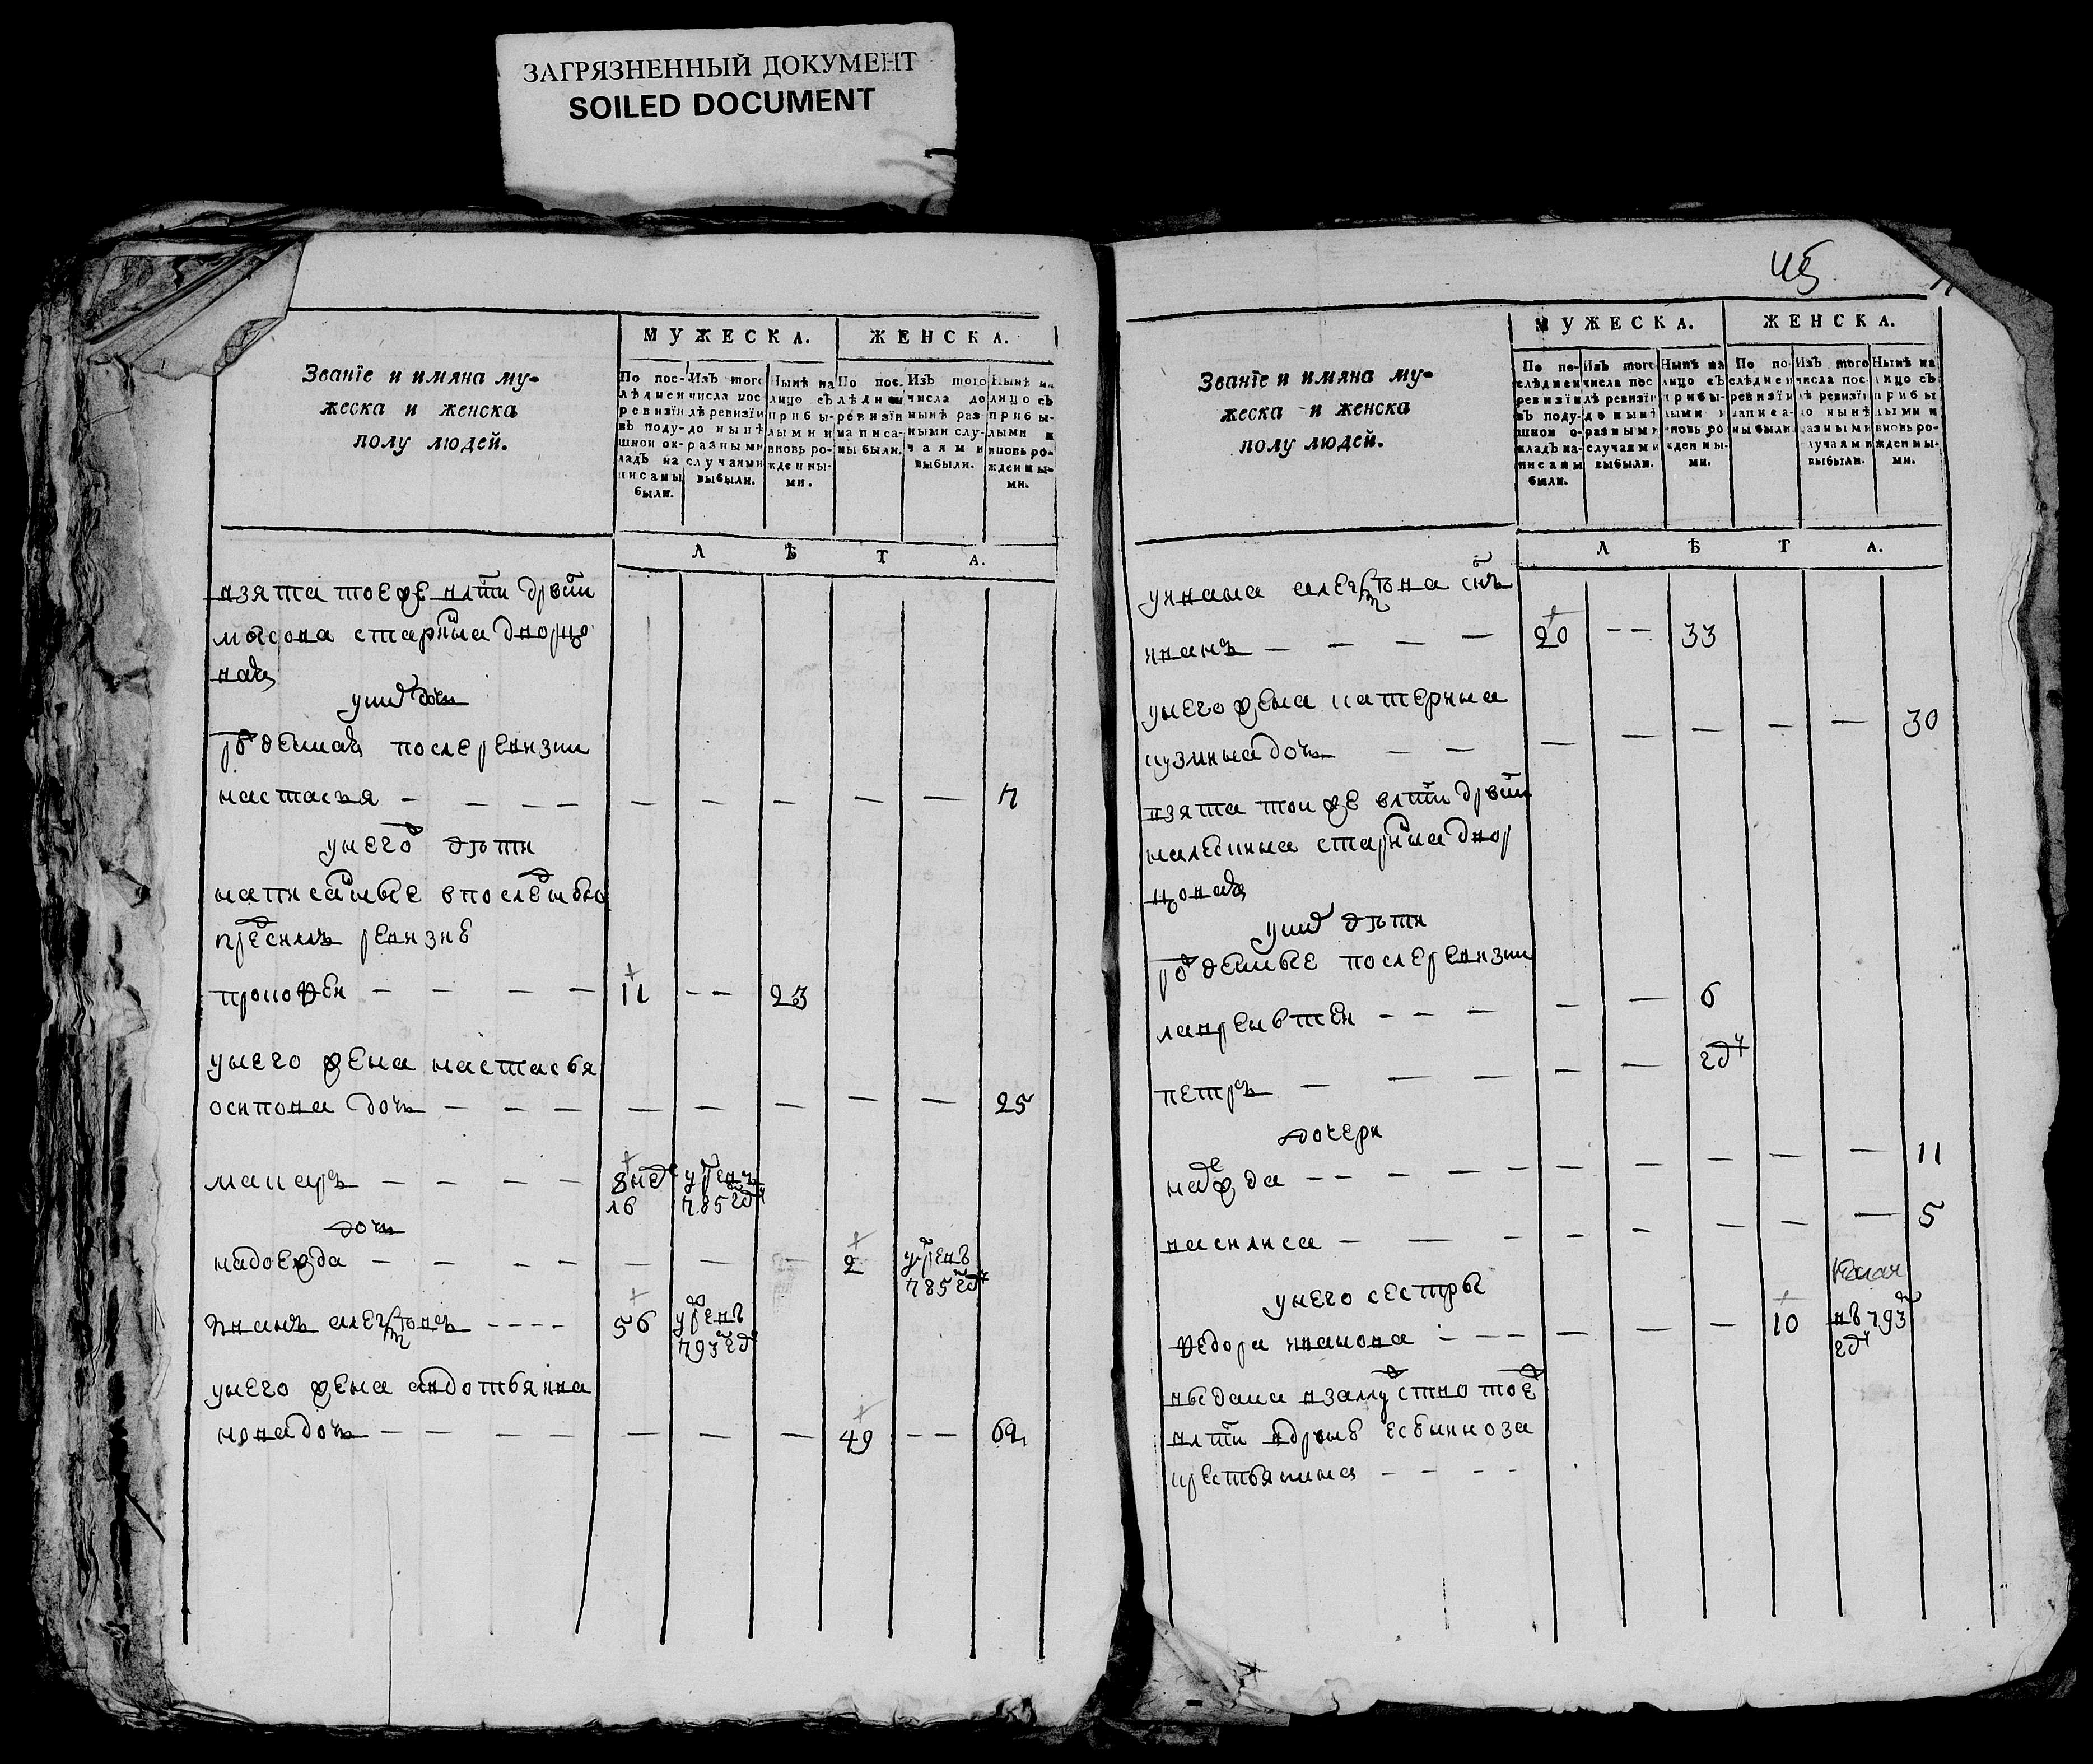 ЗАГРЯЗНЕННЫЙ ДОКУМЕНТ
SOILED DOCUMENT
Званїе и имяна му-
жеска и женска
полу людей.
МУЖЕСКА.
ЖЕНСКА.
По пос-лѣднеи ревизїи въ поду-шнои ок-ладъ на писаны были.
Изъ того числа пос лѣ ревизїи до нынѣ разными случаями выбыли.
Нынѣ на лицо съ прибы-лыми и вновь ро-жденны-ми.
По пос. лѣднеи ревизїи написа-ны были.
Изъ того числа до нынѣ раз ными слу-чаями выбыли.
Нынѣ на лицо съ прибы-лыми и вновь ро-жденны-ми.
ЛѢТА.
взята тоеже влсти дрвни
мысова старика дворцо
ваго
у них дочь
рожденная после ревизии
настасья 7
у него дѣти
написанные в последнюю
пред сим ревизию
прокофеи 11 23
у него жена настасья
осипова дочь 25
макаръ 8 нед 16 умре въ 785 год
дочь
надоежда 2 умре в 785 год
иванъ 56 умре в 793 год
у него жена авдотья ива
нова дочь 49 62
45
Званїе и имяна му-
жеска и женска
полу людей.
МУЖЕСКА.
ЖЕНСКА.
По по-слѣднеи ревизїи въ поду-шнои о-кладъ на-писаны были.
Изъ того числа пос лѣ ревизїи до нынѣ разными случаями выбыли.
Нынѣ на лицо съ прибы-лыми и вновь ро жденны-ми.
По по-слѣднеи ревизїи написа-ны были.
Изъ того числа пос-лѣ ревизїи до нынѣ разными случаями выбыли.
Нынѣ на лицо съ прибы лыми и вновь ро-жденны-ми.
ЛѢТА.
у ивана снъ
иванъ 20 33
у него жена катерина
кузмина дочь 30
взята тои же влсти дрвни
старика двор
цоваго
у них дѣти
рожденные после ревизии
лаврентеи 6
петръ год
дочери
надежда 11
василиса 5
у него сестры
федора иванова 10 въ 793 год
выдана взамужство тоеж
влсти в дрвне за
крестьянина